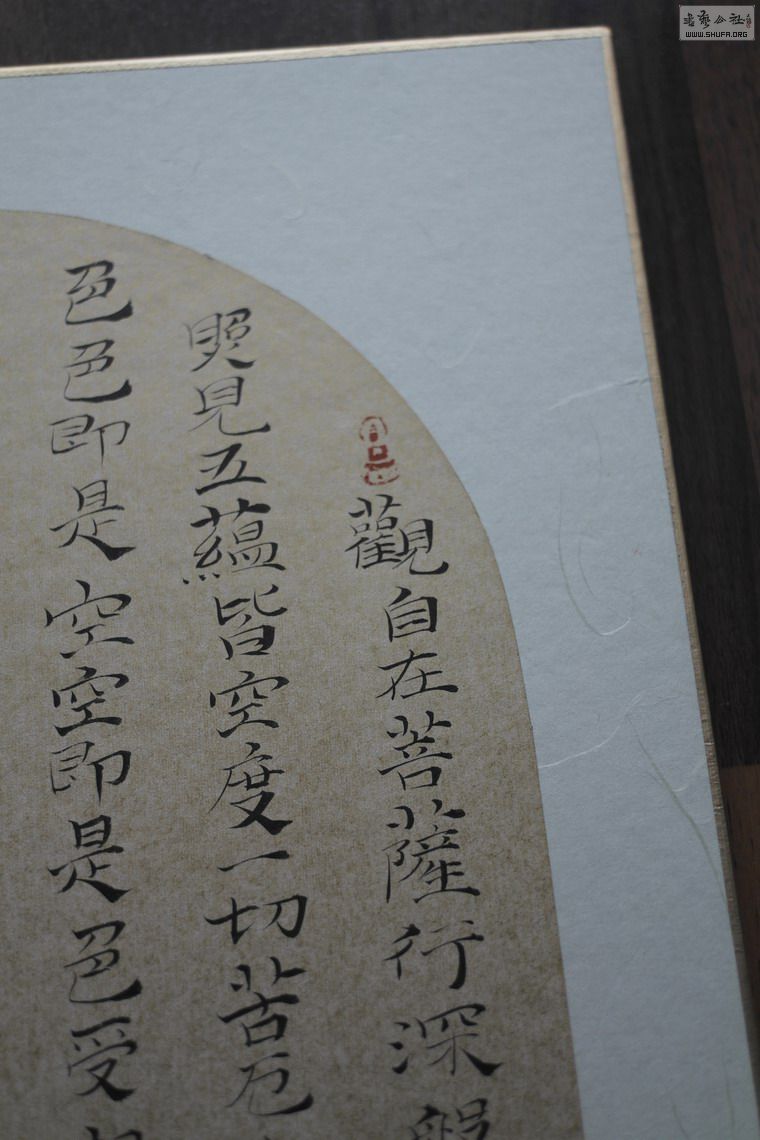 觀自在菩薩行深般
照見五蘊皆空度一切苦厄
色色即是空空即是色受
書藝公社
WWW.SHUFA.ORG